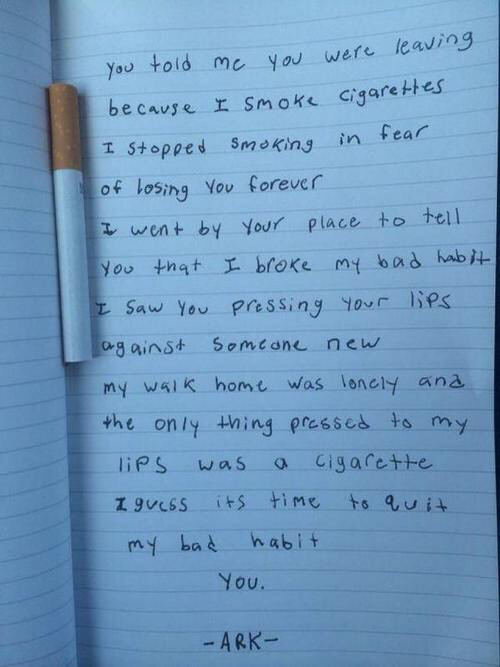 you told me you were leaving
because I smoke cigarettes
I stopped smoking in fear
of losing you forever
I went by your place to tell
you that I broke my bad habit
I saw you pressing your lips
against someone new
my walk home was lonely and
the only thing pressed to my
lips was a cigarette
I guess its time to quit
my bad habit
you.
-ARK-